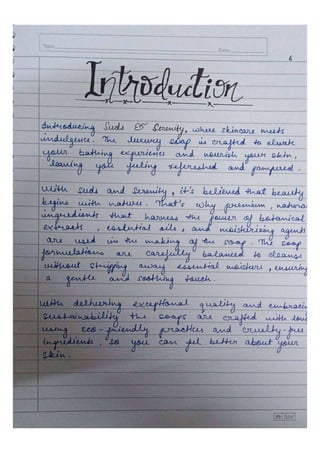 Date
6
Introduction
Introducing Suds & Serenity, where skincare meets
indulgence. The luxury soap is crafted to elevate
your bathing experience and nourish your skin,
leaving you feeling refreshed and pampered.
With suds and serenity, it's believed that beauty
begins with nature. That's why premium, natural
ingredients that harness the power of botanical
extracts, essential oils, and moisturizing agents
are used in the making of the soap. The soap
formulations are carefully balanced to cleanse
without stripping away essential moisture, ensuring
a gentle and soothing touch.
With delivering exceptional quality and embracin
sustainability the soaps are crafted with
using eco-friendly practices and cruelty-free
ingredients, so you can feel better about your
skin.